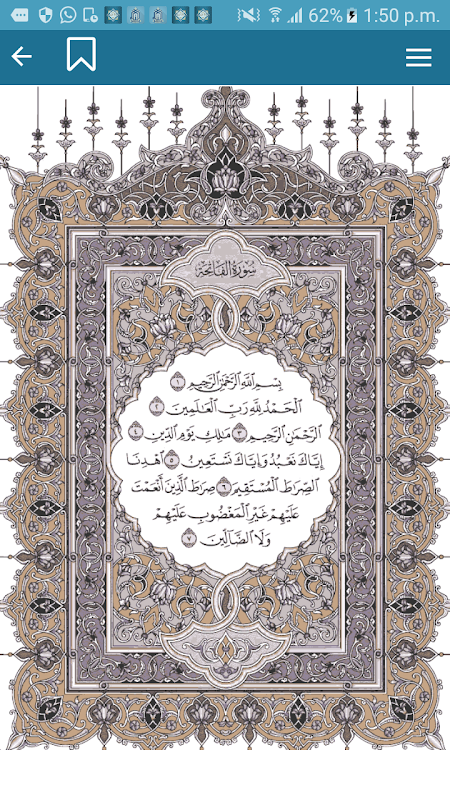 62% 1:50 p.m.
سُورَةُ الْفَاتِحَةِ
بِسْمِ اللَّهِ الرَّحْمَٰنِ الرَّحِيمِ ١
الْحَمْدُ لِلَّهِ رَبِّ الْعَالَمِينَ ٢
الرَّحْمَٰنِ الرَّحِيمِ ٣ مَالِكِ يَوْمِ الدِّينِ ٤
إِيَّاكَ نَعْبُدُ وَإِيَّاكَ نَسْتَعِينُ ٥ اهْدِنَا
الصِّرَاطَ الْمُسْتَقِيمَ ٦ صِرَاطَ الَّذِينَ أَنْعَمْتَ
عَلَيْهِمْ غَيْرِ الْمَغْضُوبِ عَلَيْهِمْ
وَلَا الضَّالِّينَ ٧